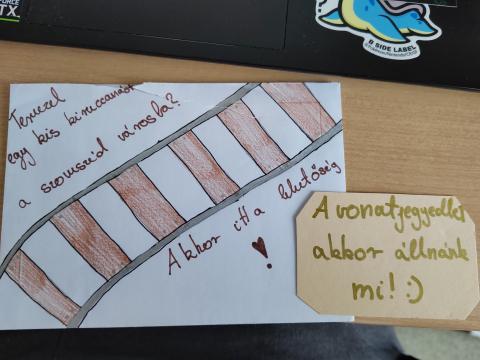 RTX
B SIDE LABEL
Tervezel
egy kis kiruccanást
a szomszéd városba?
Akkor itt a lehetőség
!
A vonatjegyedet
akkor állnánk
mi! :)